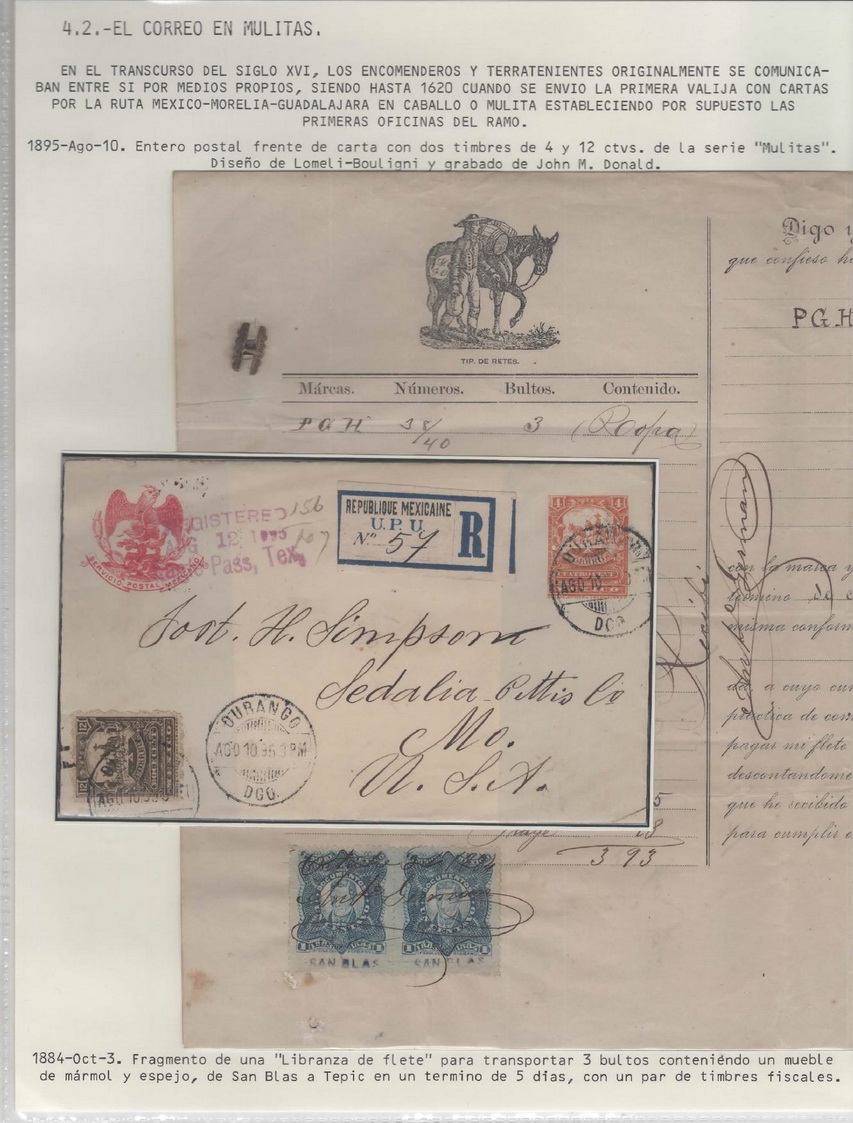 4.2.-EL CORREO EN MULITAS.
EN EL TRANSCURSO DEL SIGLO XVI, LOS ENCOMENDEROS Y TERRATENIENTES ORIGINALMENTE SE COMUNICA-
BAN ENTRE SI POR MEDIOS PROPIOS, SIENDO HASTA 1620 CUANDO SE ENVIO LA PRIMERA VALIJA CON CARTAS
POR LA RUTA MEXICO-MORELIA-GUADALAJARA EN CABALLO O MULITA ESTABLECIENDO POR SUPUESTO LAS
PRIMERAS OFICINAS DEL RAMO.
1895-Ago-10. Entero postal frente de carta con dos timbres de 4 y 12 ctvs. de la serie "Mulitas".
Diseño de Lomeli-Bouligni y grabado de John M. Donald.
Digo y
que confieso ha
PGH
TIP. DE RETES.
Márcas. Números. Bultos. Contenido.
PGH 38/40 3 (Ropa)
SERVICIO POSTAL MEXICANO
GISTERED
12 1895
Pass, Tex.
156
107
REPUBLIQUE MEXICAINE
U.P.U.
Nº 57
R
4
DURANGO
AGO 10
DGO.
Recibí
con la marca y
término de
misma conform
da, a cuyo cum
práctica de com
pagar mi flete
descontandome
que he recibido
para cumplir
Post. H. Simpson
Sedalia Pettis Co
Mo.
U.S.A.
12
AGO 10
DURANGO
AGO 10 95 3 PM
DGO.
5
18
3 93
DOCUMENTOS
DOCUMENTOS
SAN BLAS
SAN BLAS
1884-Oct-3. Fragmento de una "Libranza de flete" para transportar 3 bultos conteniéndo un mueble
de mármol y espejo, de San Blas a Tepic en un termino de 5 dias, con un par de timbres fiscales.